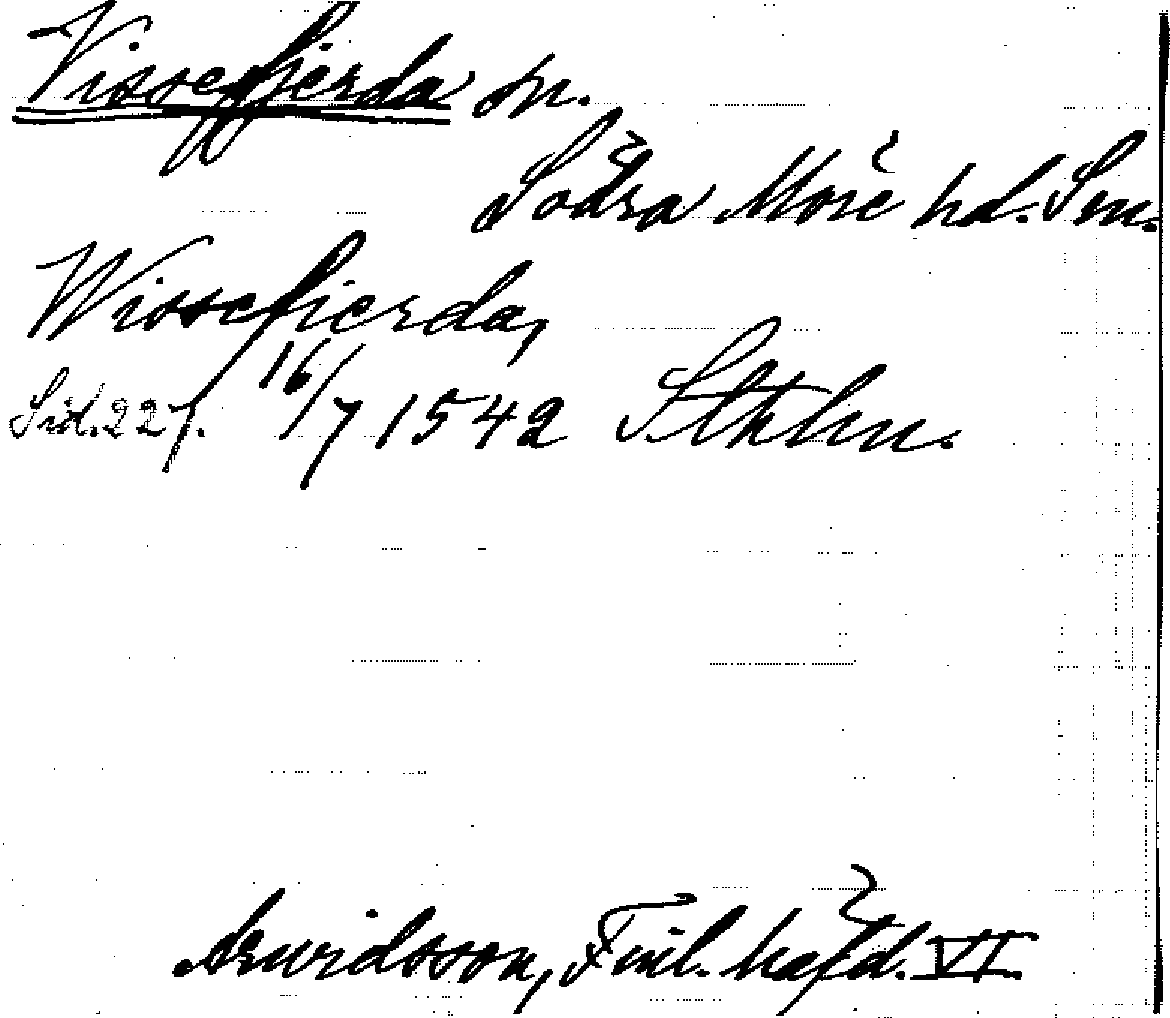 Vissefjerda sn.
Södra Möre hd. Sm.
Wissefierda,
Sid. 227. 16/7 1542 Sthlm.
Arwidsson, Finl. häfd. VI.